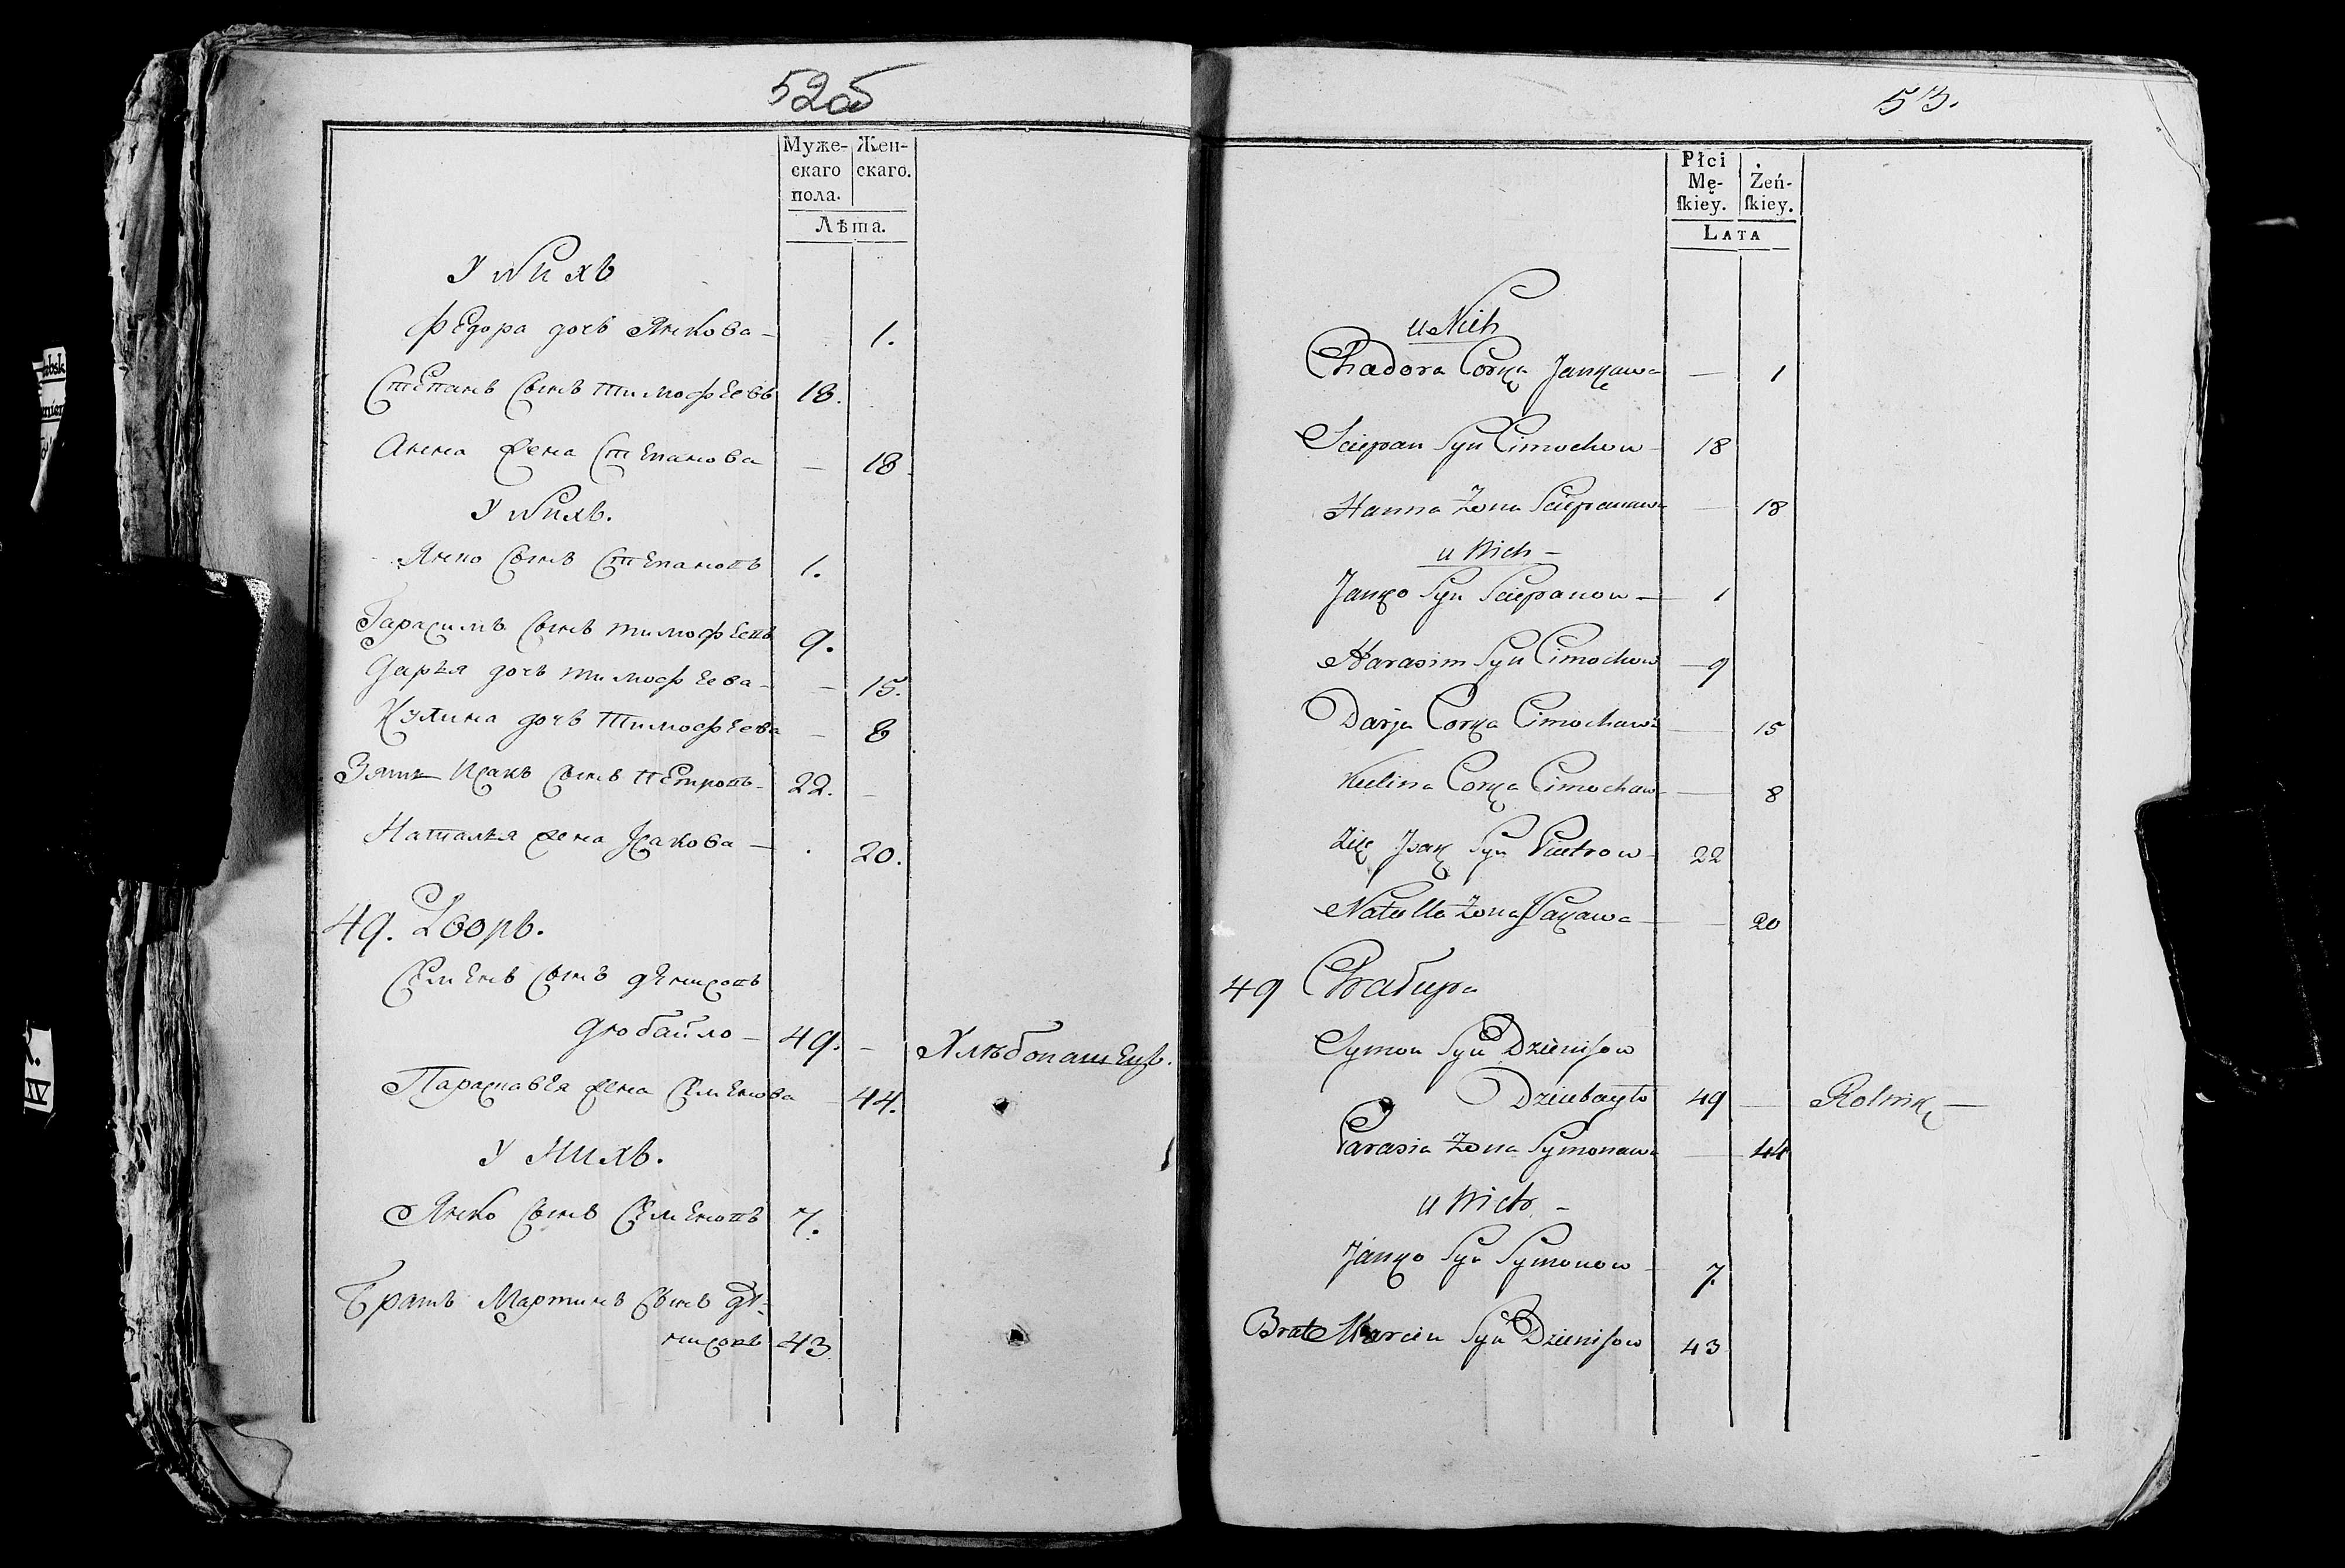 52об
Муже-
скаго
пола.
Жен-
скаго.
Лѣта.
У Нихъ
Федора дочь Янкова — 1.
Степанъ Сынъ тимофеевъ 18.
Анна Жена Степанова — 18
У Нихъ.
Янко Сынъ Степановъ 1.
Гарасимъ Сынъ тимофеевъ 9.
Дарья дочь тимофеева — 15.
Кулина дочь Тимофеева — 8
Зять Исакъ Сынъ Петровъ 22. —
Наталья Жена Исакова — 20.
49. Дворъ.
Семенъ Сынъ денисовъ
Дзюбайло — 49. — Хлѣбопашецъ.
Параскавея Жена Семенова — 44.
У Нихъ.
Янко Сынъ Семеновъ 7.
Братъ Мартинъ Сынъ Де-
нисовъ 43
53.
Płci
Mę-
ſkiey.
Żeń-
ſkiey.
LATA
u Nich
Chadora Corka Jankawa — 1
Sciepan Syn Cimochow — 18
Hanna Żona Sciepanawa — 18
u Nich —
Janko Syn Sciepanow — 1
Harasim Syn Cimochow — 9
Darja Corka Cimochawa — 15
Kulina Corka Cimochaw — 8
Zić Isak Syn Pietrow — 22
Natalla Żona Isakawa — 20
49 Chałupa
Symon Syn Dzieniſow
Dziubayło 49 — Rolnik —
Parasia Żona Symonawa — 44
u Nich —
Janko Syn Symonow — 7.
Brat Marcin Syn Dzieniſow 43